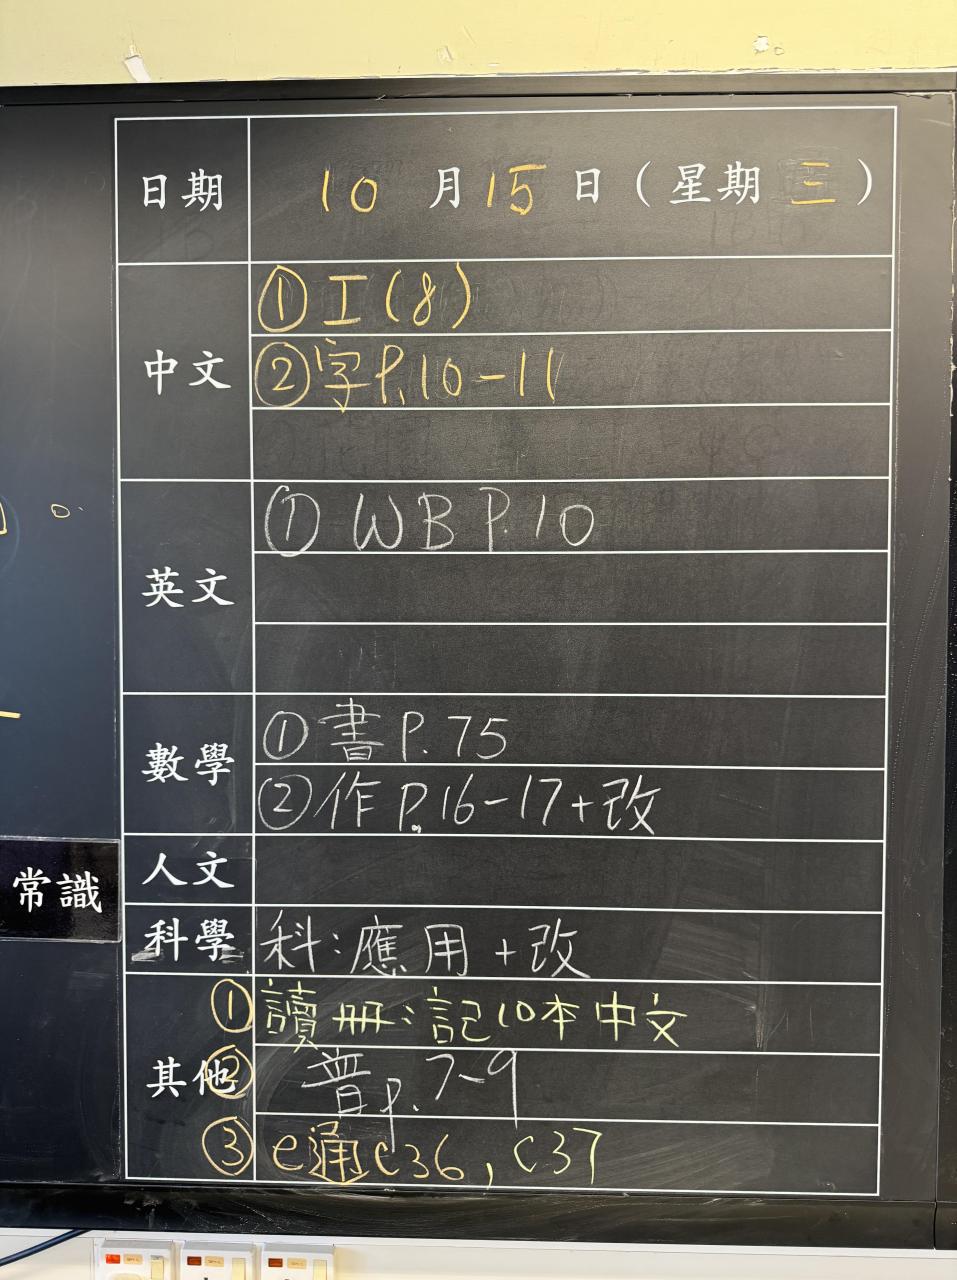 日期 10月15日（星期三）
中文
①工(8)
②字P.10-11
英文
① WB P.10
數學
①書P.75
②作P.16-17+改
人文
常識
科學 科:應用+改
其他
①讀冊:記10本中文
②普p.7-9
③e通C36, C37